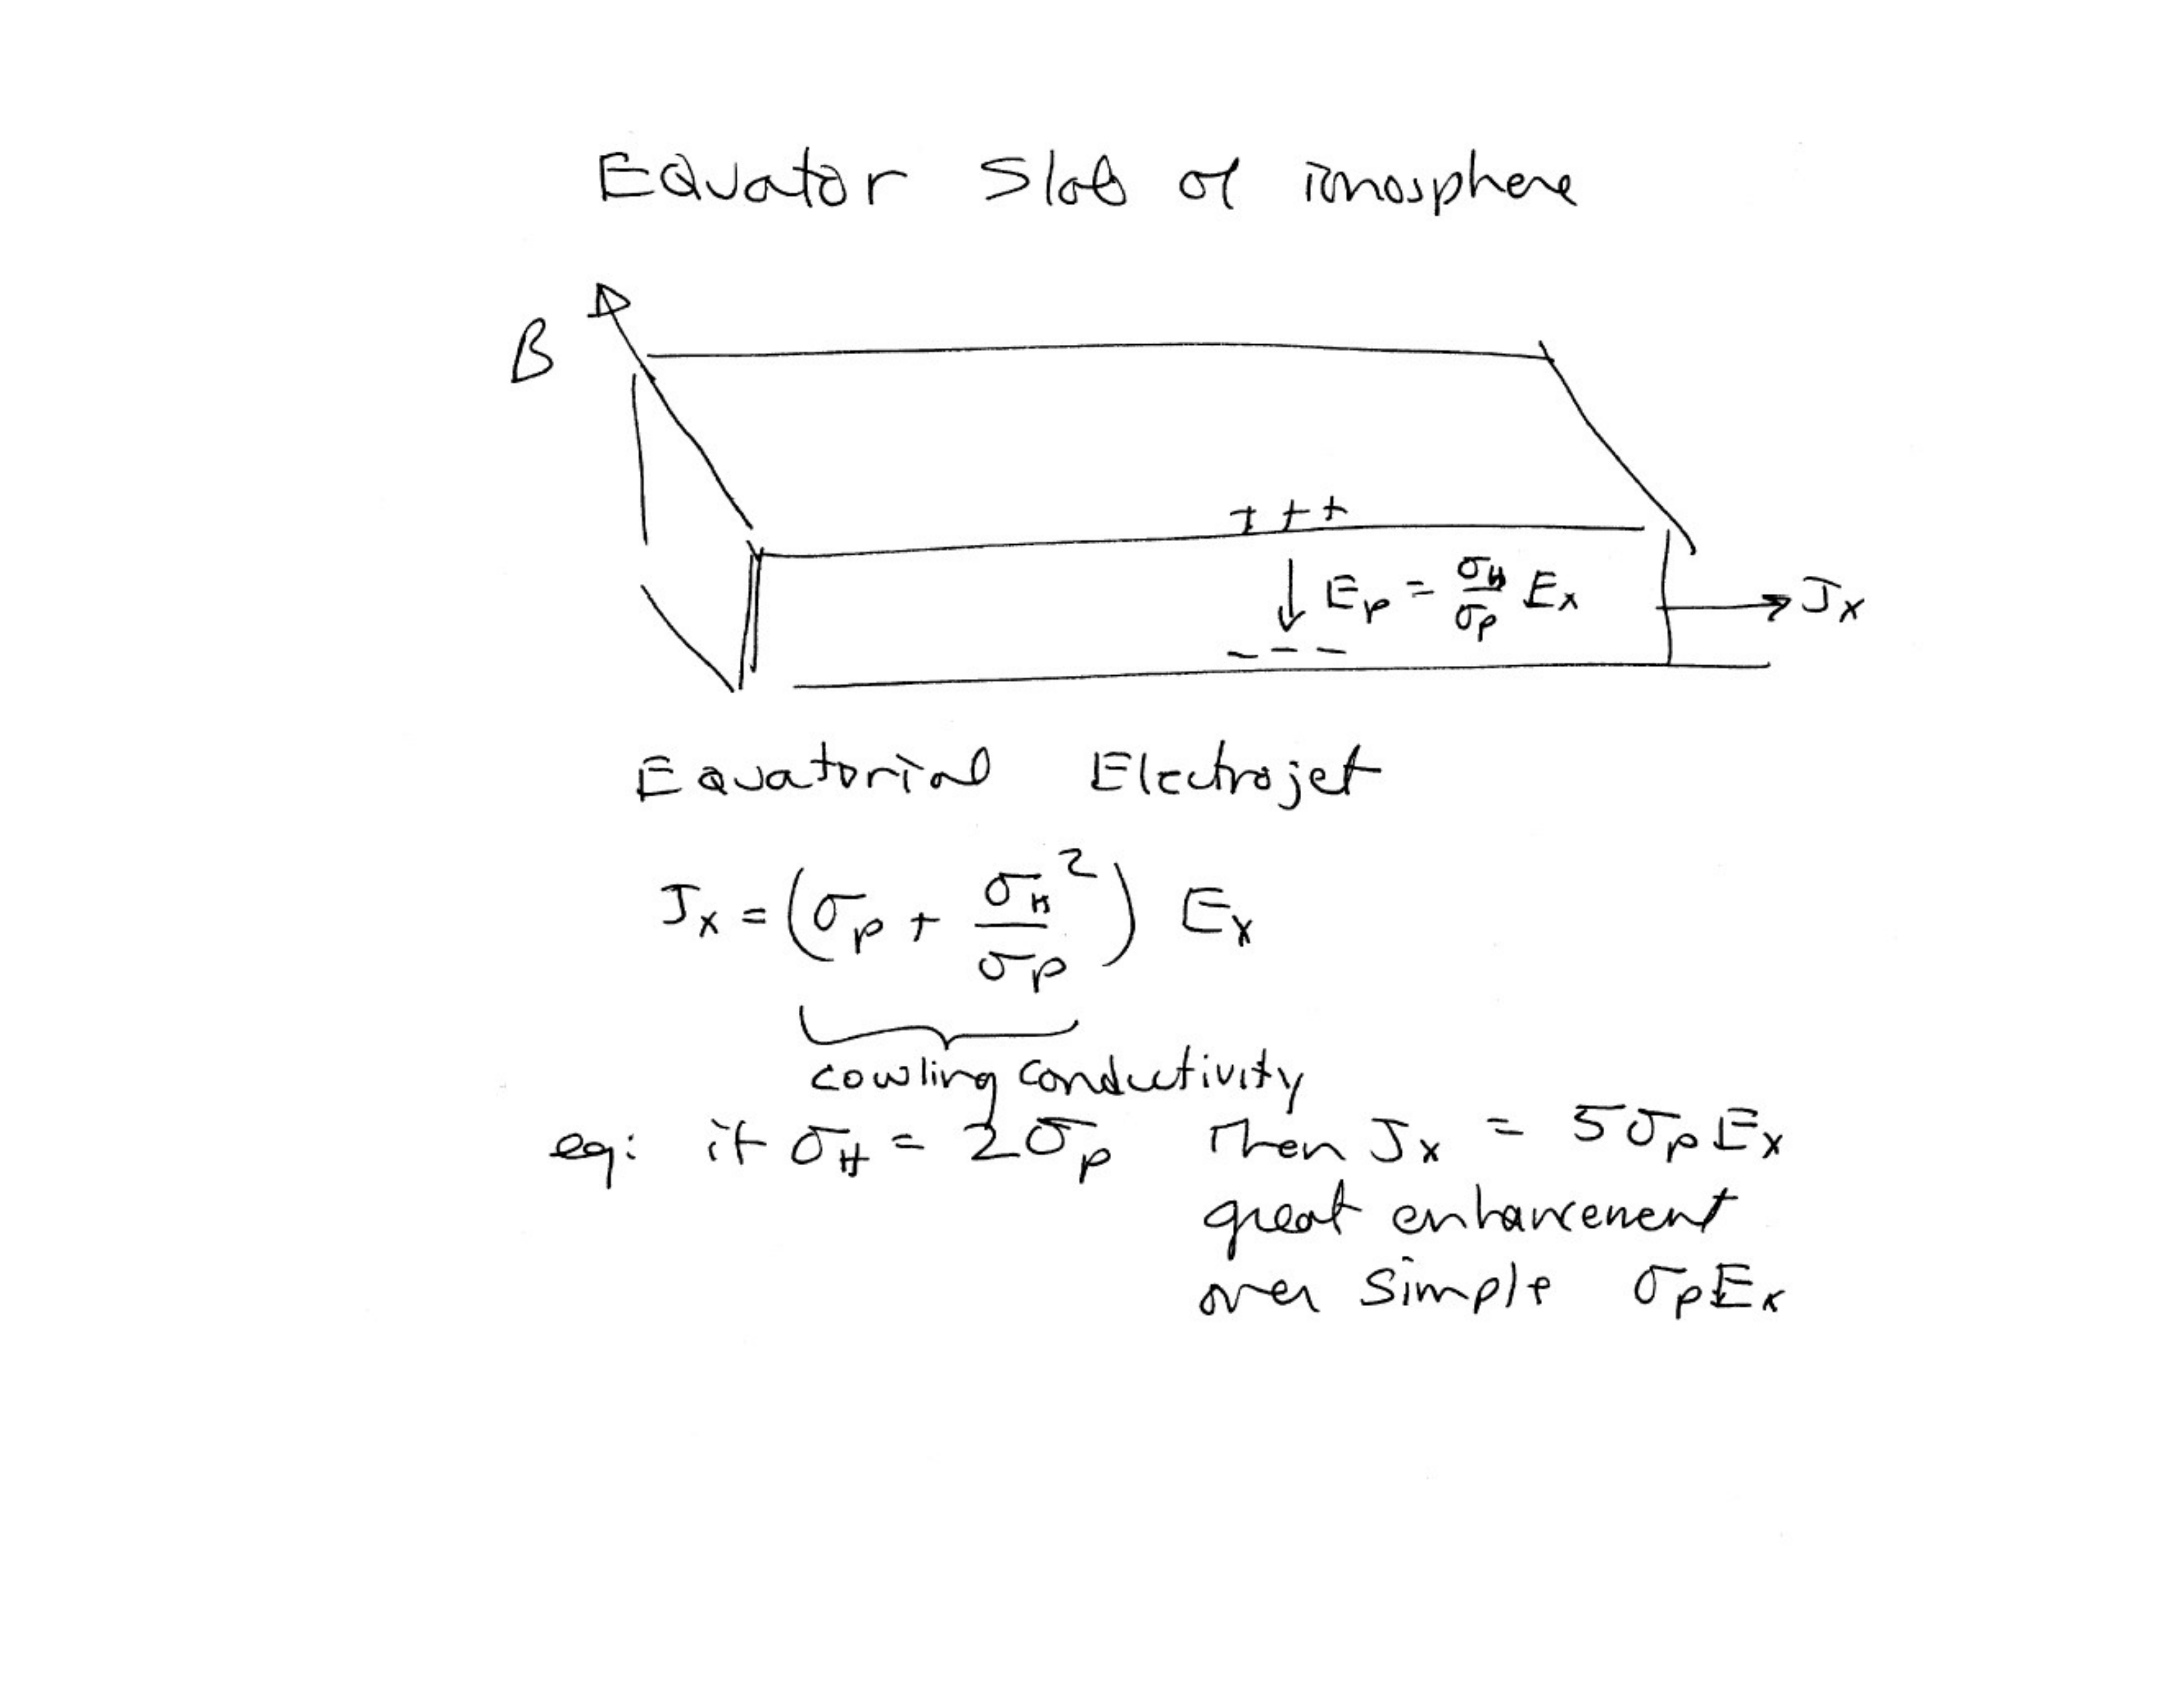 Equator Slab of ionosphere
B
+ + +
↓ E_p = σ_H/σ_p E_x
→ J_x
- - -
Equatorial Electrojet
J_x = (σ_p + σ_H²/σ_p) E_x
cowling conductivity
eg: if σ_H = 2σ_p Then J_x = 5σ_pE_x
great enhancement
over simple σ_pE_x